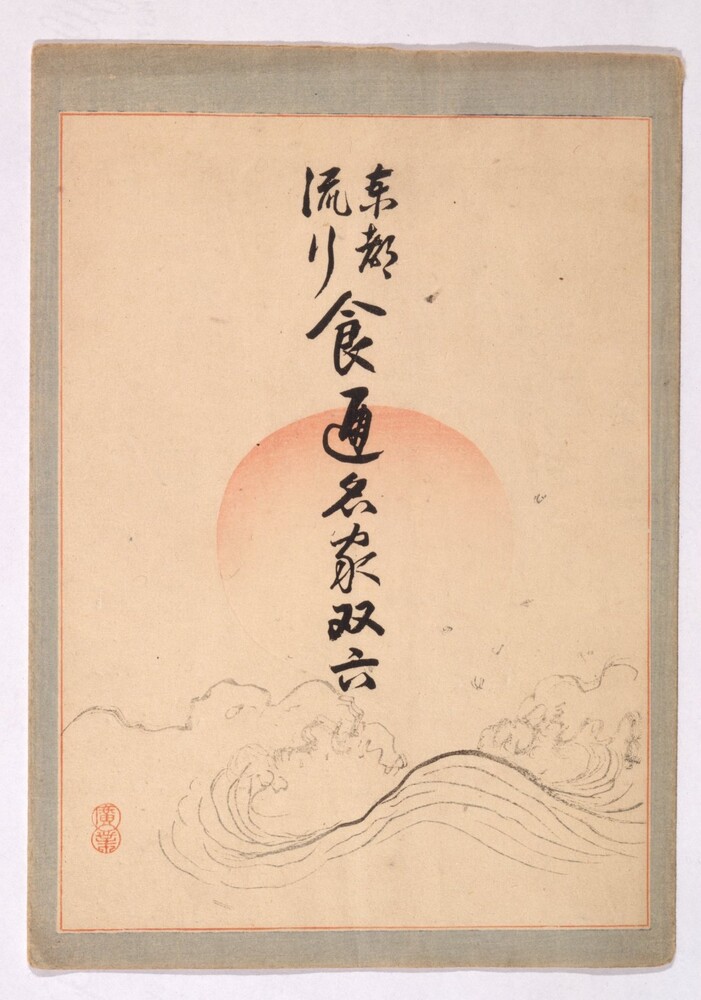 東都
流行
食通名家双六
廣業